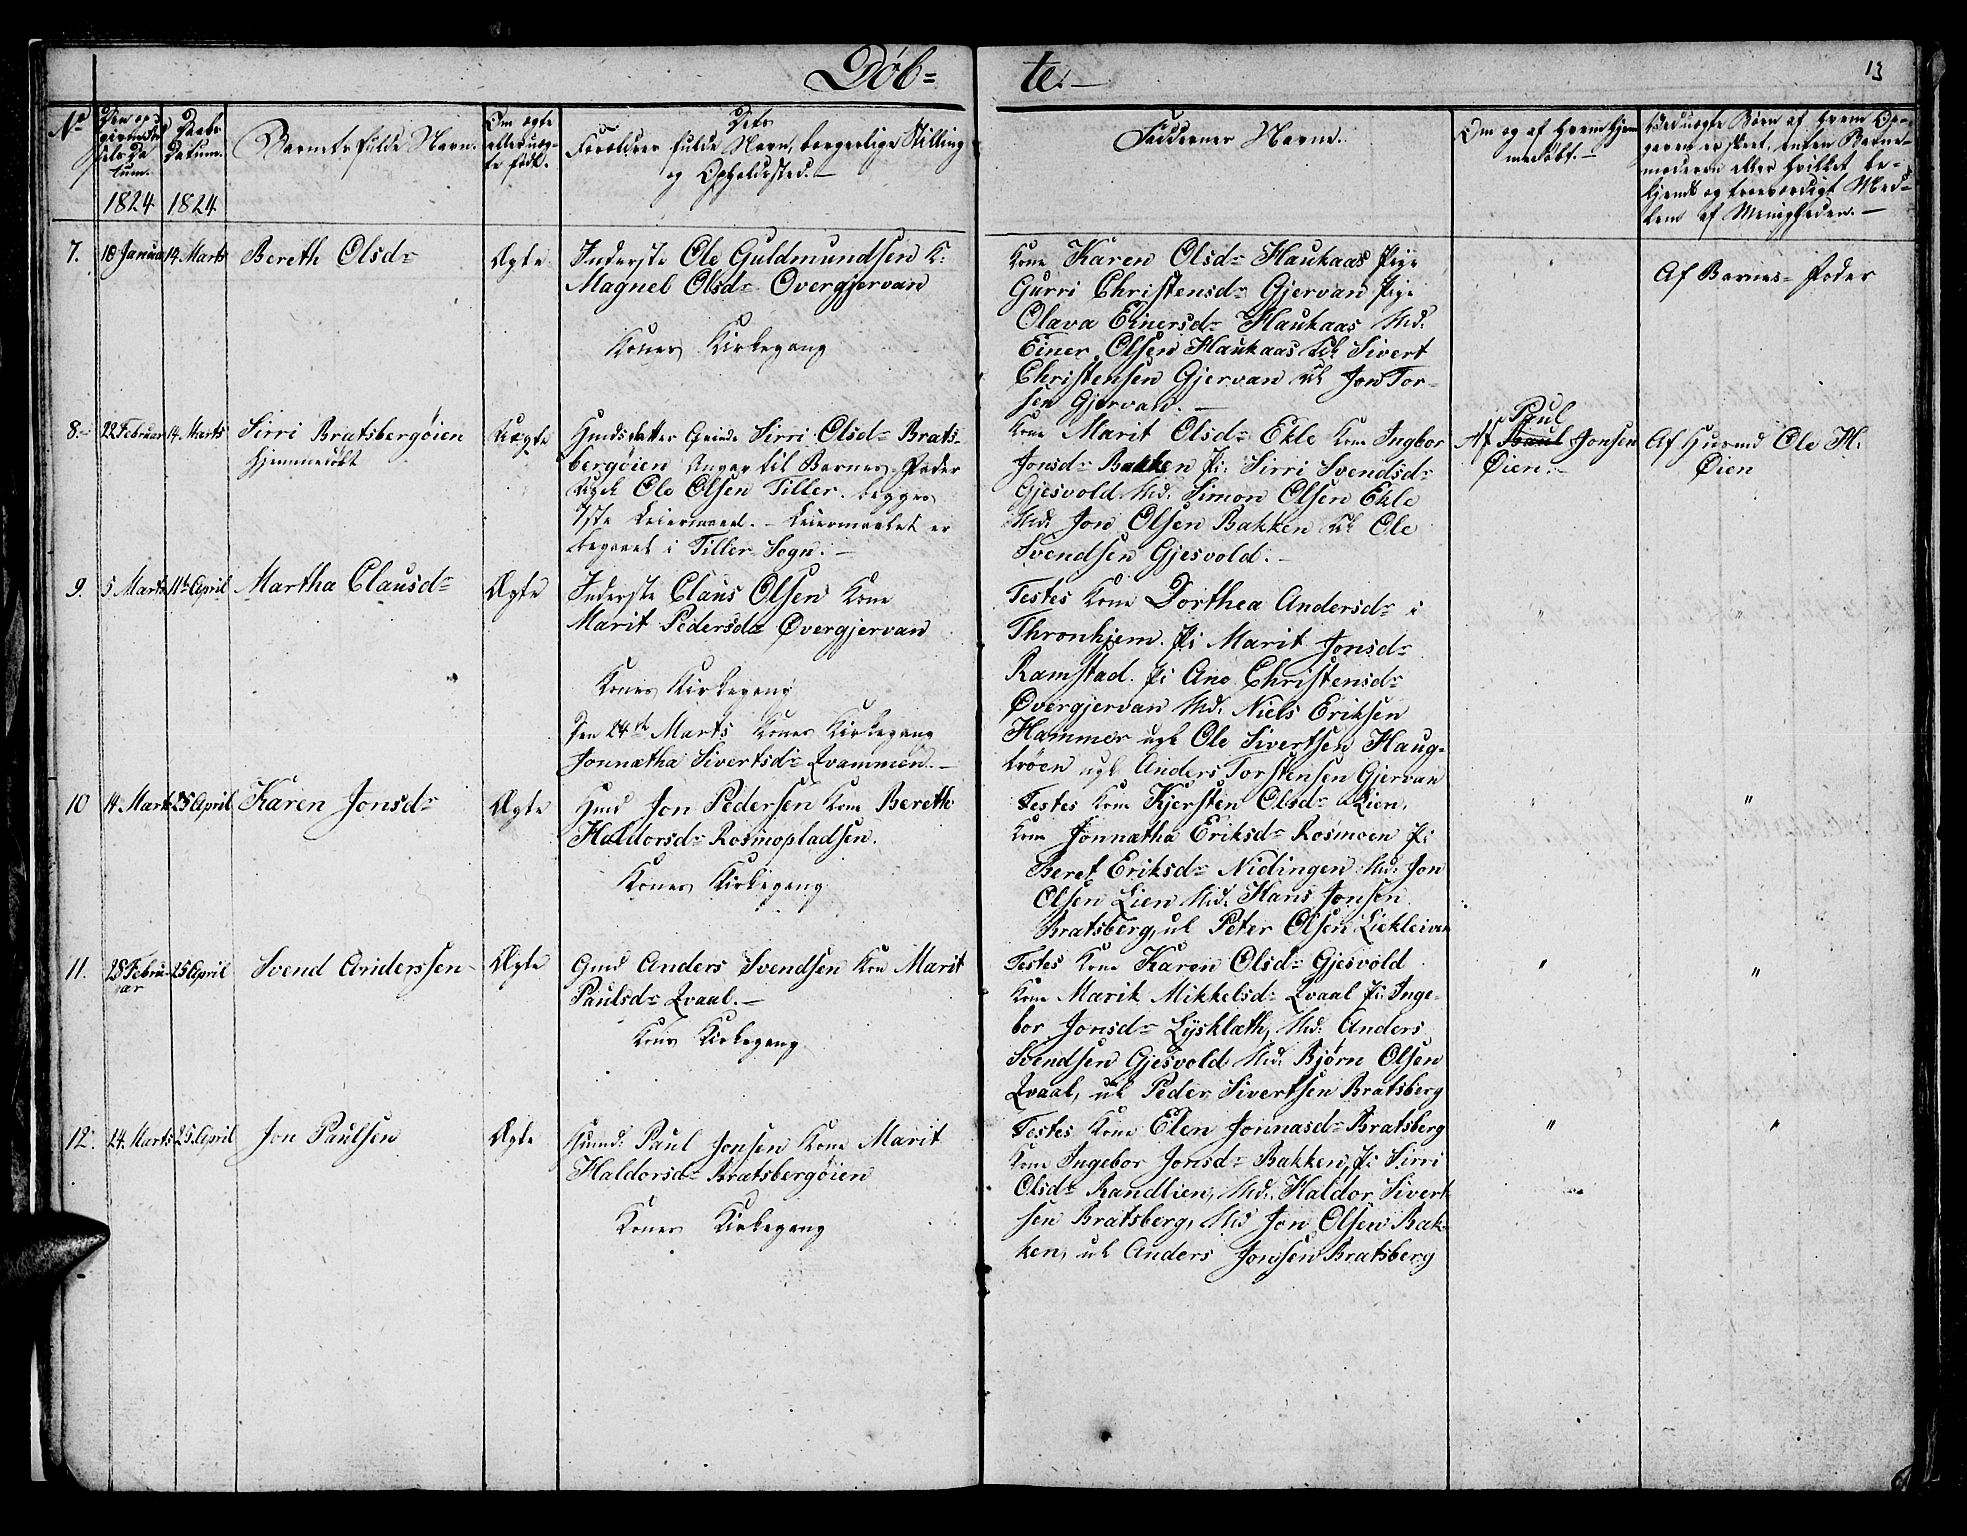 Döb= te.
13
No
Barnets fulde Navn.
Om ægte eller uæg-te født.
Dets Forældres fulde Navn, borgerlige Stilling og Opholdssted.
Faddernes Navne.
Om og af hvem hjem-medøbt.
Daabs Datum.
1824 1824
7. 18 Januar 14 Marts Bereth Olsdr Ægte Inderste Ole Guldmundsen K:
Magnel Olsdr Overgjervan
Konens Kirkegang
Kone Karen Olsdr Haukaas Pige
Gurri Christensdr Gjervan Pige
Olava Einersdr Haukaas Md.
Einer Olsen Haukaas Uk Sivert
Christensen Gjervan Uk Jon Tor-
sen Gjervan.
Af Barnes-Fader
8. 22 Februar 14. Marts Sirri Bratsbergøien Uægte
hjemmedøbt
Sirri Olsdr Brats-
bergøien Angav til Barnes-Fader
Ole Olsen Tiller. begges
1ste Leiermaal. - Leiermaalet er
begaaet i Tiller Sogn.
Kone Marit Olsdr Ekle Kone Ingbor
Jonsdr Bakken Pi: Sirri Svendsdr
Gjesvold Md. Simon Olsen Ekle
Md: Jon Olsen Bakken Uk Ole
Svendsen Gjesvold.
Paul
Af Paul Jonsen
Øien.
Af Huusmd Ole H.
Øien
9. 5 Marts 11te April Martha Clausdr Ægte Inderste Claus Olsen Kone
Marit Pedersdr Øvergjervan
Konens Kirkegang
Den 24de Marts Konens Kirkegang
Jonnætha Sivertsdr Qvammen.
Testes Kone Dorthea Andersdr i
Thronhjem. Pi Marit Jonsdr
Ramstad. Pi Ane Christensdr
Øvergjervan Md. Niels Eriksen
Hammer ugk Ole Sivertsen Haug-
trøen ugk Anders Torstensen Gjervan
" "
10 14. Marts 25 April Karen Jonsdr Ægte Huusmd Jon Pedersen Kone Bereth
Haldorsdr Rosmopladsen.
Konens Kirkegang
Testes Kone Kjersten Olsdr Lien,
Kone Jonnatha Eriksdr Rosmoen Pi:
Beret Eriksdr Nidingen Md: Jon
Olsen Lien Md. Hans Jonsen
Bratsberg, uk Peter Olsen Liekleiven
" "
11. 28 Febru-ar 25 April Svend Anderssen Ægte Gmd Anders Svendsen Kone Marit
Paulsdr Qvaal.
Kons Kirkegang
Testes Kone Karen Olsdr Gjesvold
Kone Marit Mikkelsdr Qvaal Pi: Inge-
bor Jonsdr Lysklæth, Md: Anders
Svendsen Gjesvold Md. Bjørn Olsen
Qvaal, uk Peder Sivertsen Bratsberg
" "
12. 24. Marts 25. April Jon Paulsen Ægte Huusmd: Paul Jonsen Kone Marit
Haldorsdr Bratsbergøien
Konens Kirkegang
Testes Kone Elen Jonnasdr Bratsberg
Kone Ingebor Jonsdr Bakken, Pi Sirri
Olsdr Randlien, Md. Haldor Sivert
sen Bratsberg, Md Jon Olsen Bak-
ken, uk Anders Jonsen Bratsberg
" "